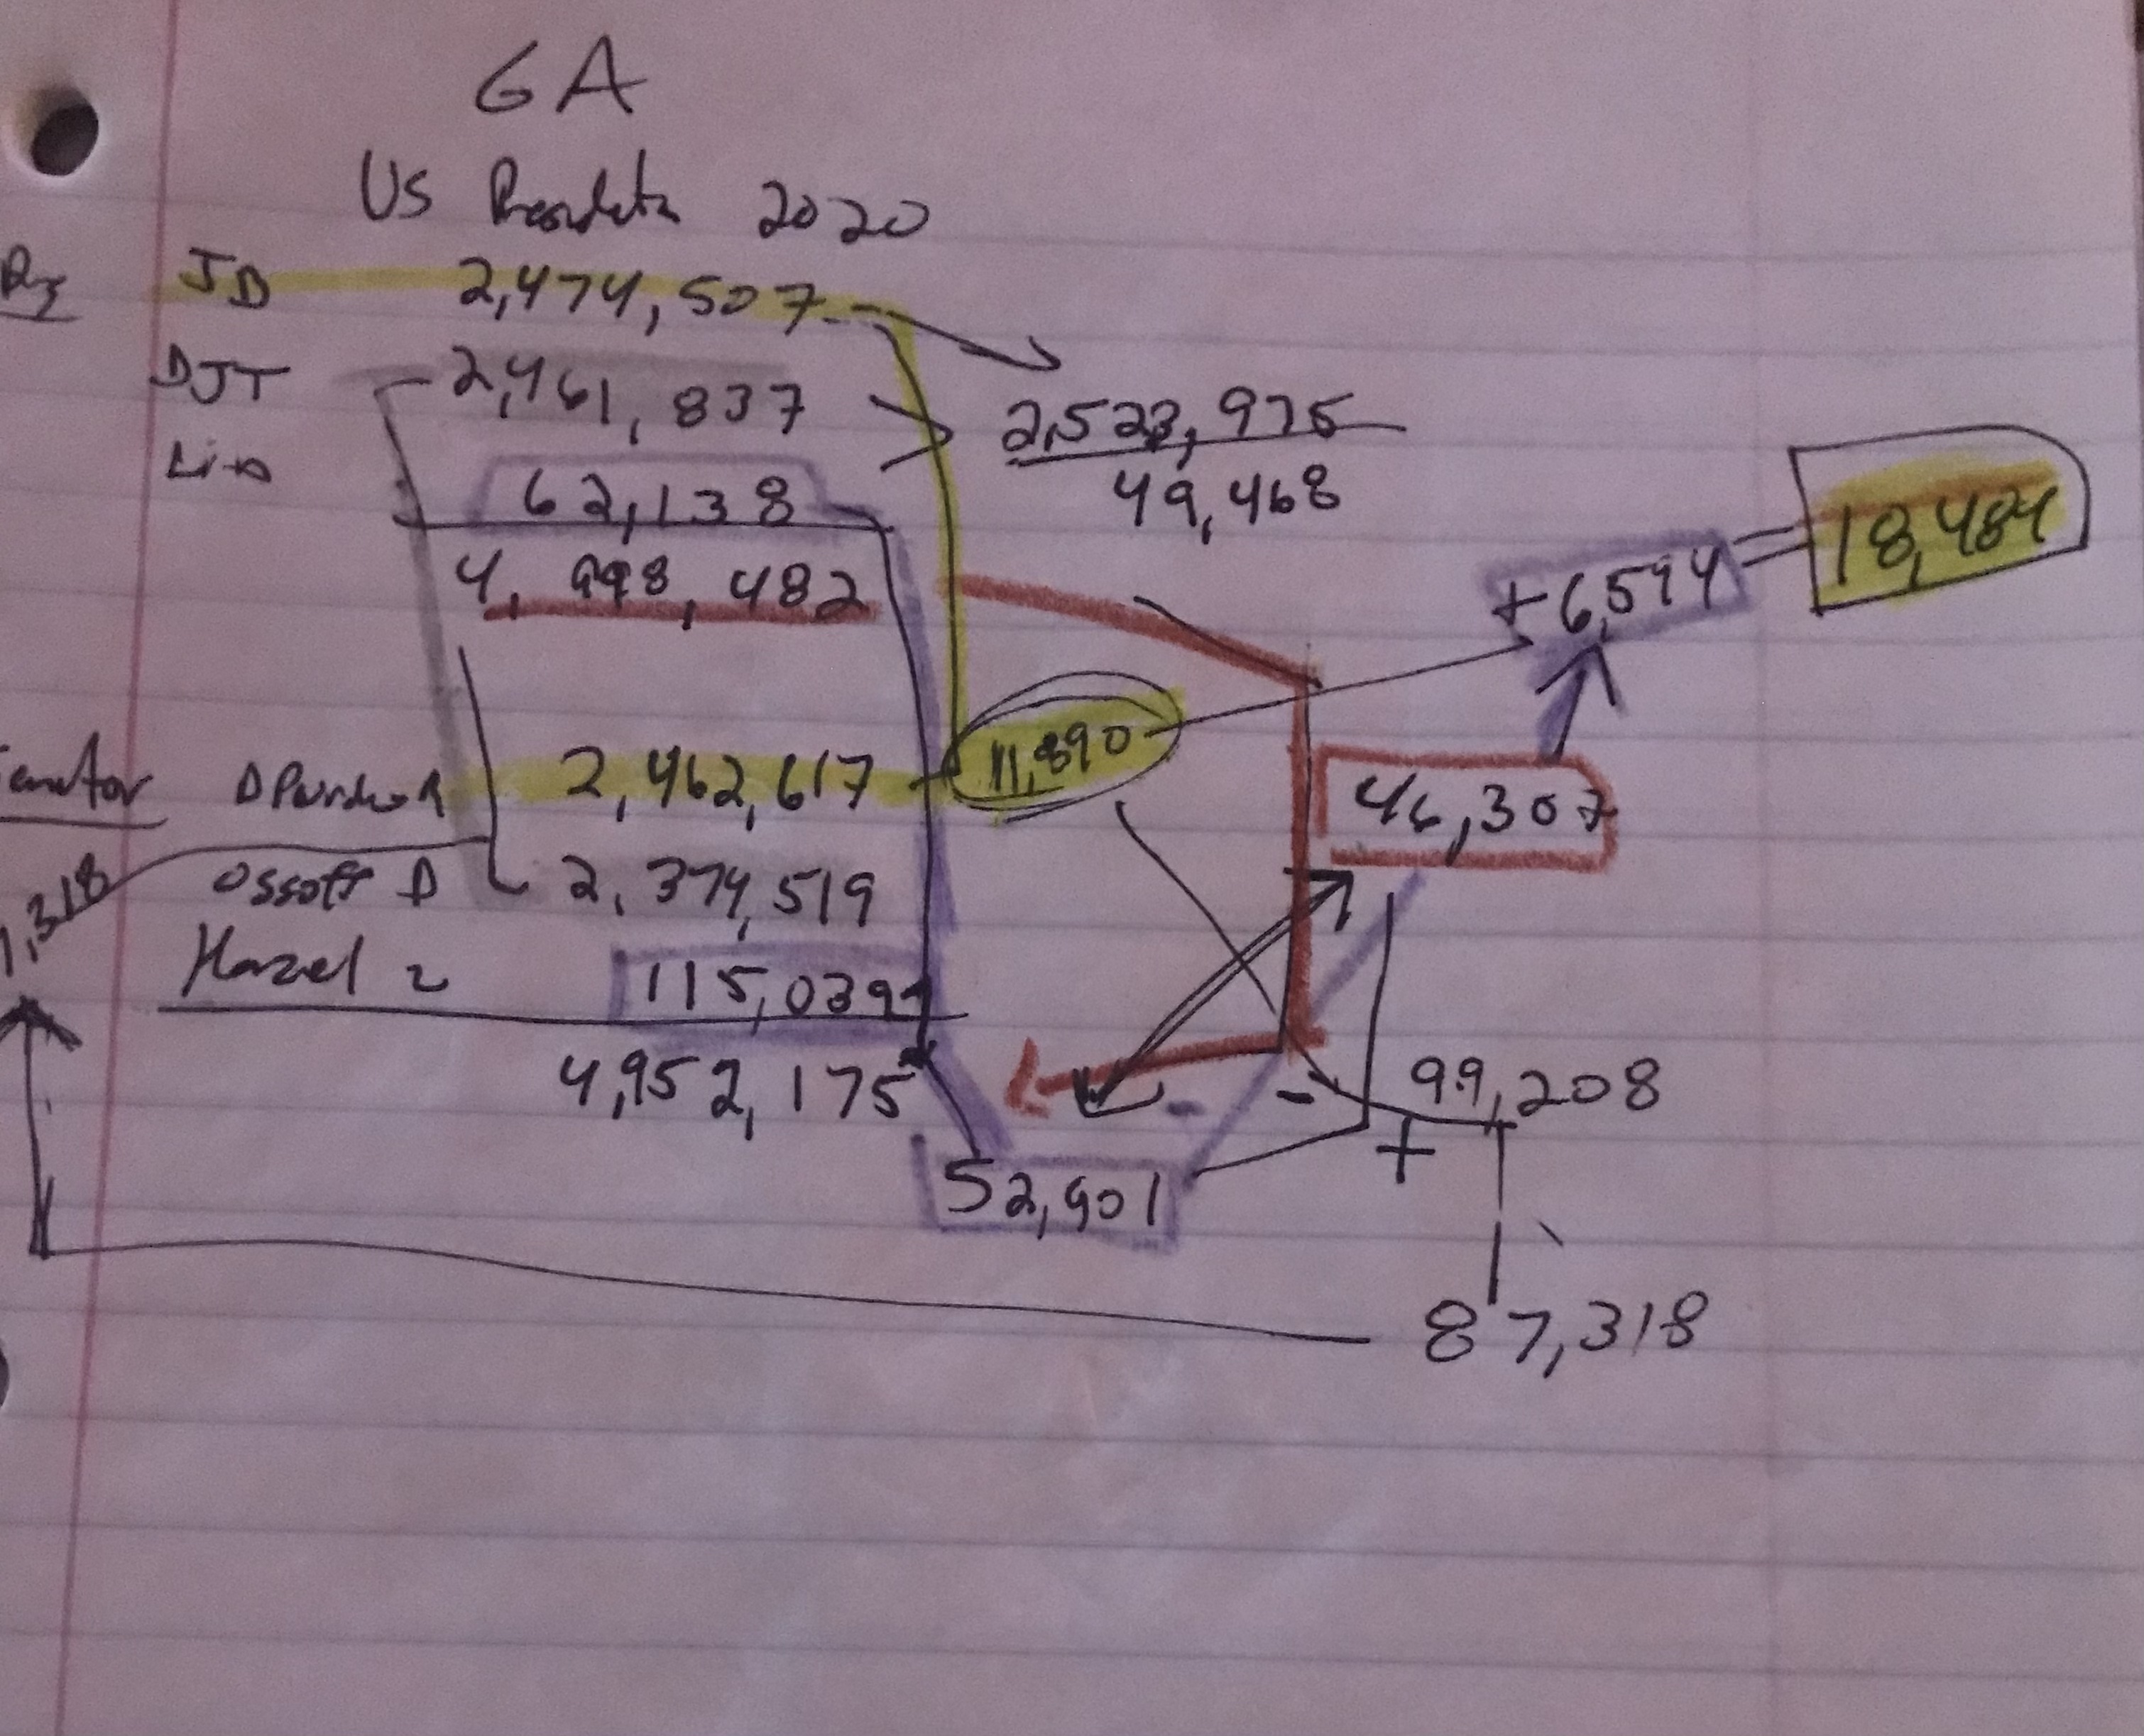 GA
US 2020
JB 2,474,507
DJT 2,461,837
2,523,975
Lib 62,138
49,468
4,998,482
+6,594 = 18,484
11,890
enator D Perdue R 2,462,617
46,307
,318
Ossoff D 2,374,519
Hazel L 115,039
4,952,175
- - 99,208
+
52,901
87,318